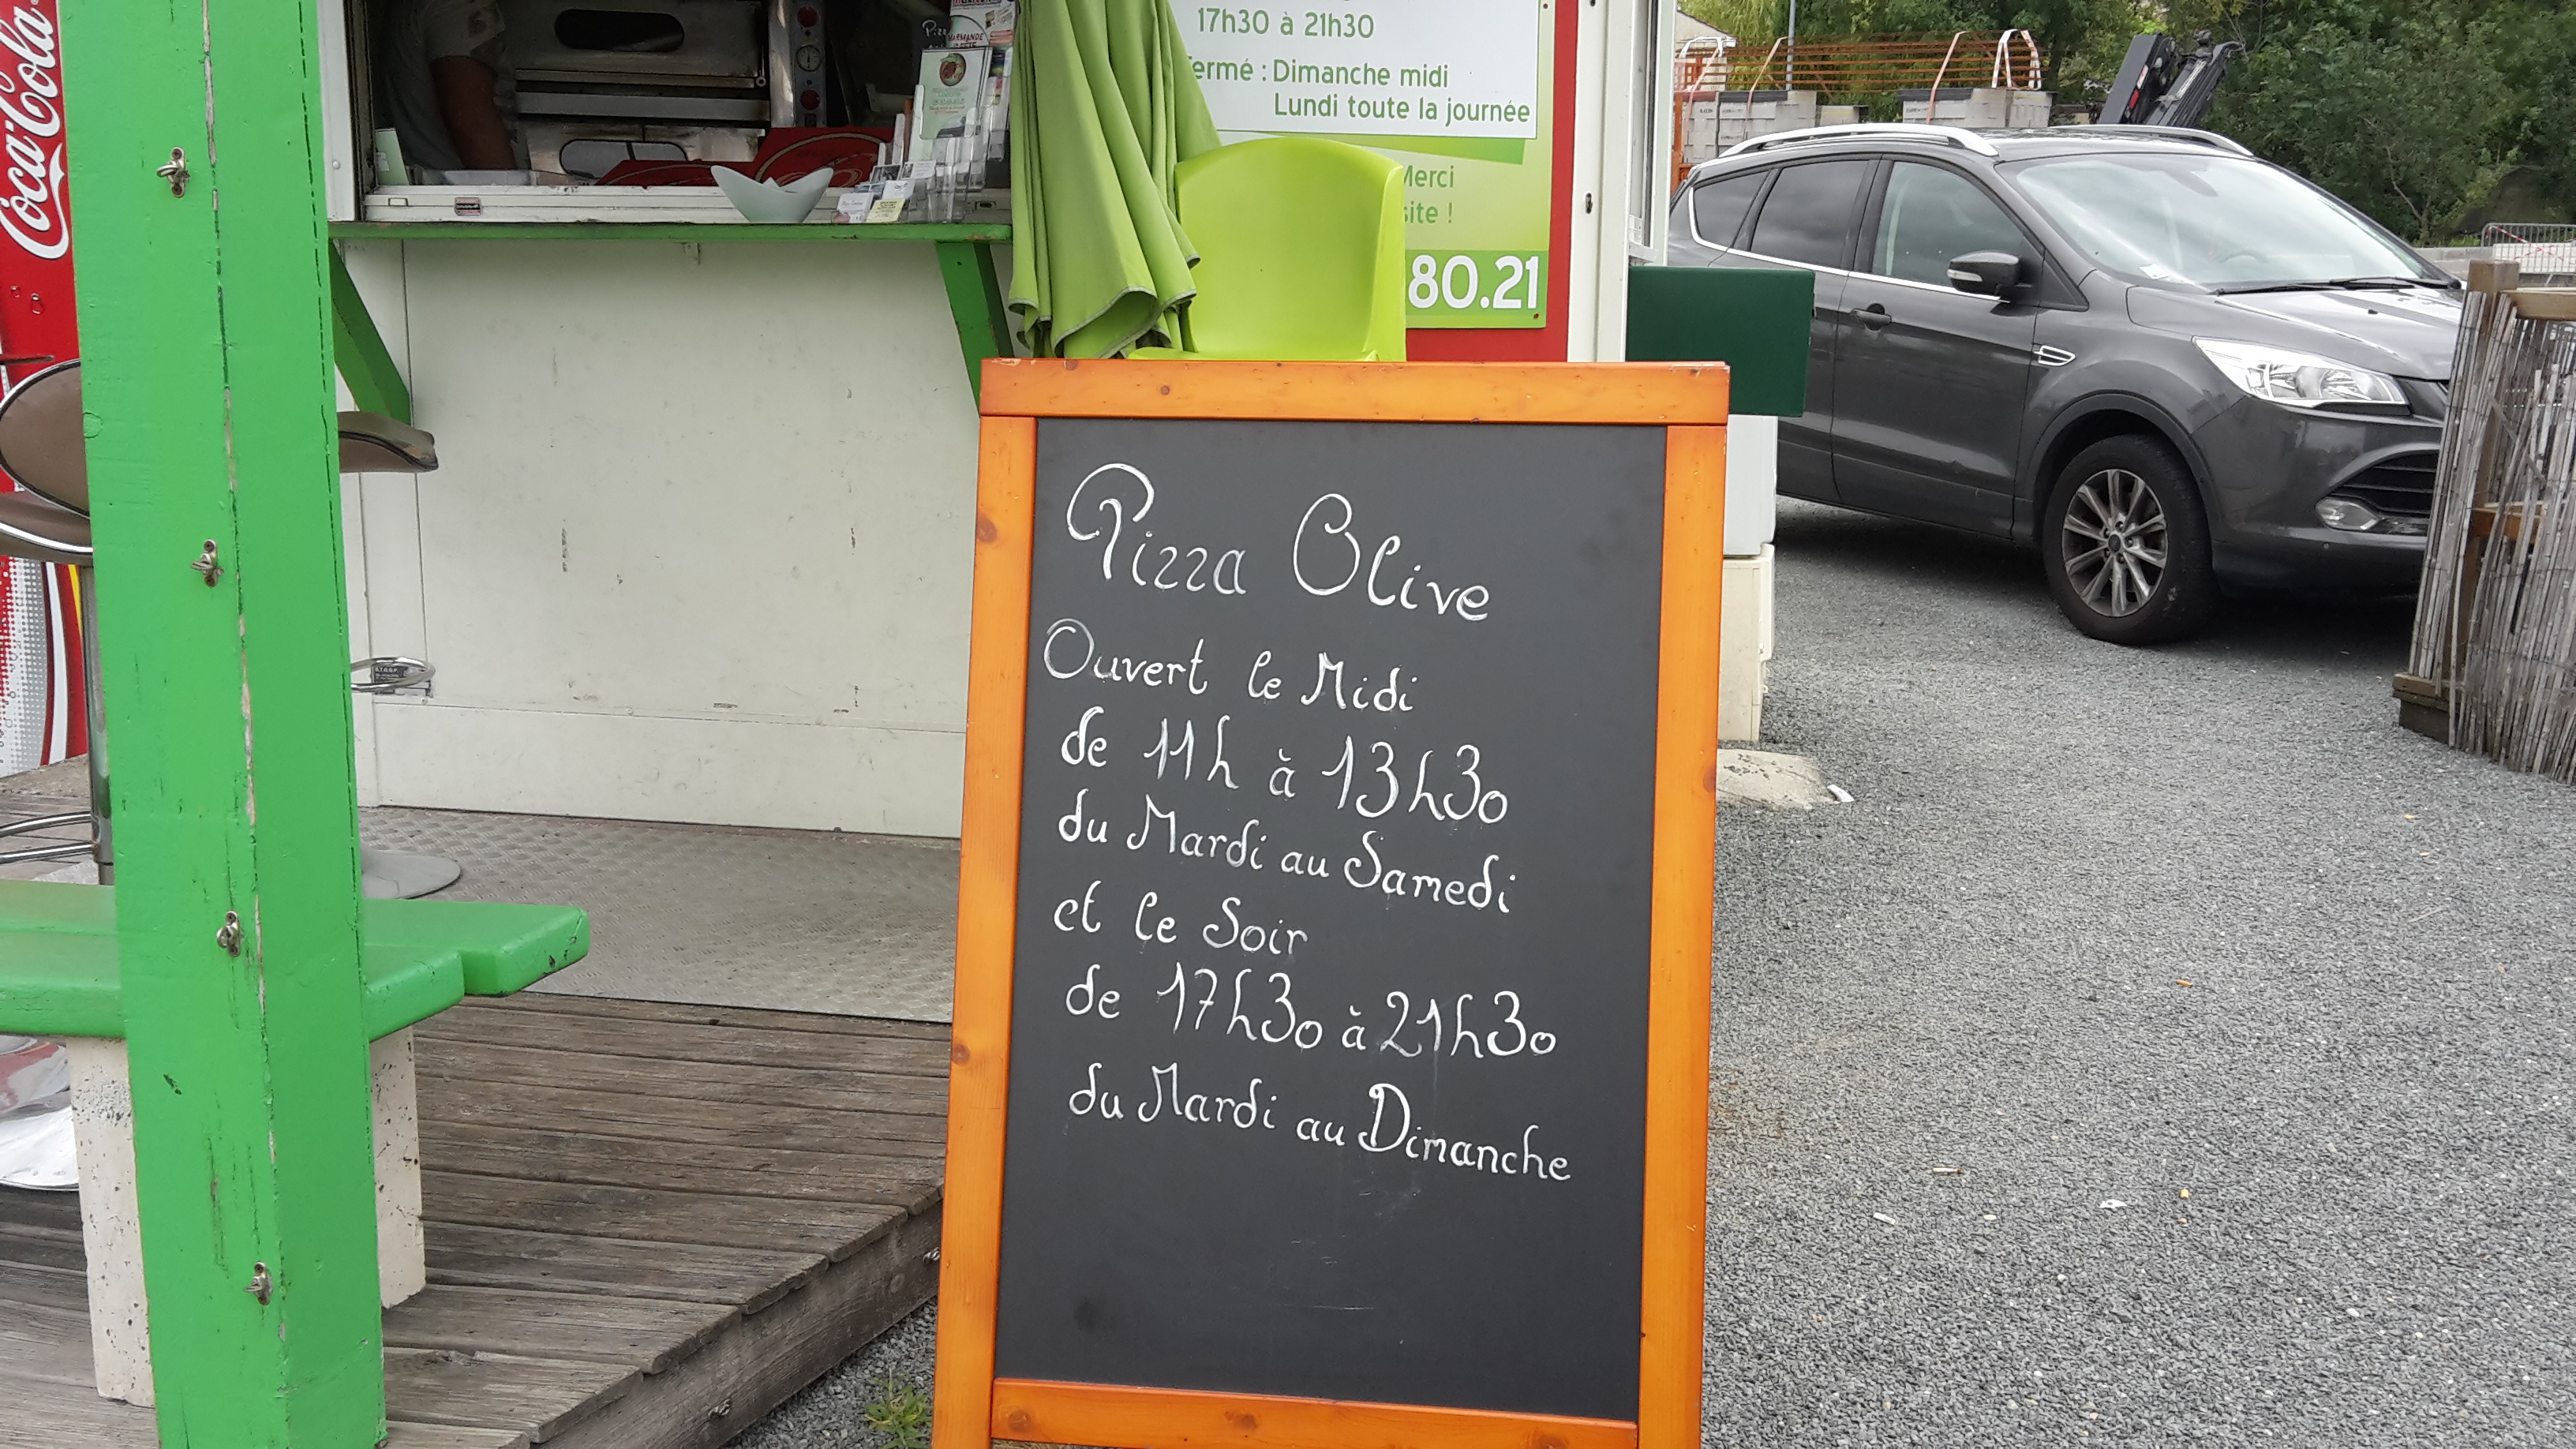 Coca-Cola
17h30 à 21h30
ermé : Dimanche midi
Lundi toute la journée
Merci
site !
80.21
Pizza Olive
Ouvert le Midi
de 11h à 13h30
du Mardi au Samedi
et le Soir
de 17h30 à 21h30
du Mardi au Dimanche